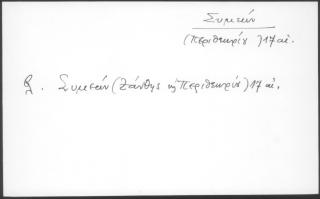 Συμεών
(Περιθεωρίου) 17 αἰ.
βλ. Συμεών (Ξάνθης ἢ Περιθεωρίου) 17 αἰ.